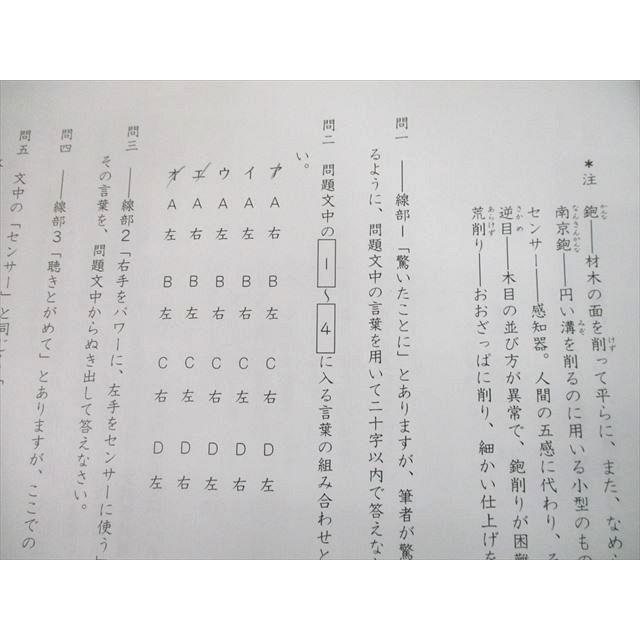 ＊注　鉋――材木の面を削って平らに、また、なめ
南京鉋――円い溝を削るのに用いる小型のもの
センサー――感知器。人間の五感に代わり、そ
逆目――木目の並び方が異常で、鉋削りが困難
荒削り――おおざっぱに削り、細かい仕上げを
問一　――線部1「驚いたことに」とありますが、筆者が驚
るように、問題文中の言葉を用いて二十字以内で答えな
問二　問題文中の1～4に入る言葉の組み合わせと
い。
ア　A　右　B　左　C　右　D　左
イ　A　左　B　右　C　左　D　右
ウ　A　左　B　右　C　左　D　左
エ　A　右　B　左　C　右　D　右
オ　A　左　B　左　C　右　D　左
問三　――線部2「右手をパワーに、左手をセンサーに使う」
その言葉を、問題文中からぬき出して答えなさい。
問四　――線部3「聴きとがめて」とありますが、ここでの
問五　文中の「センサー」と同じ